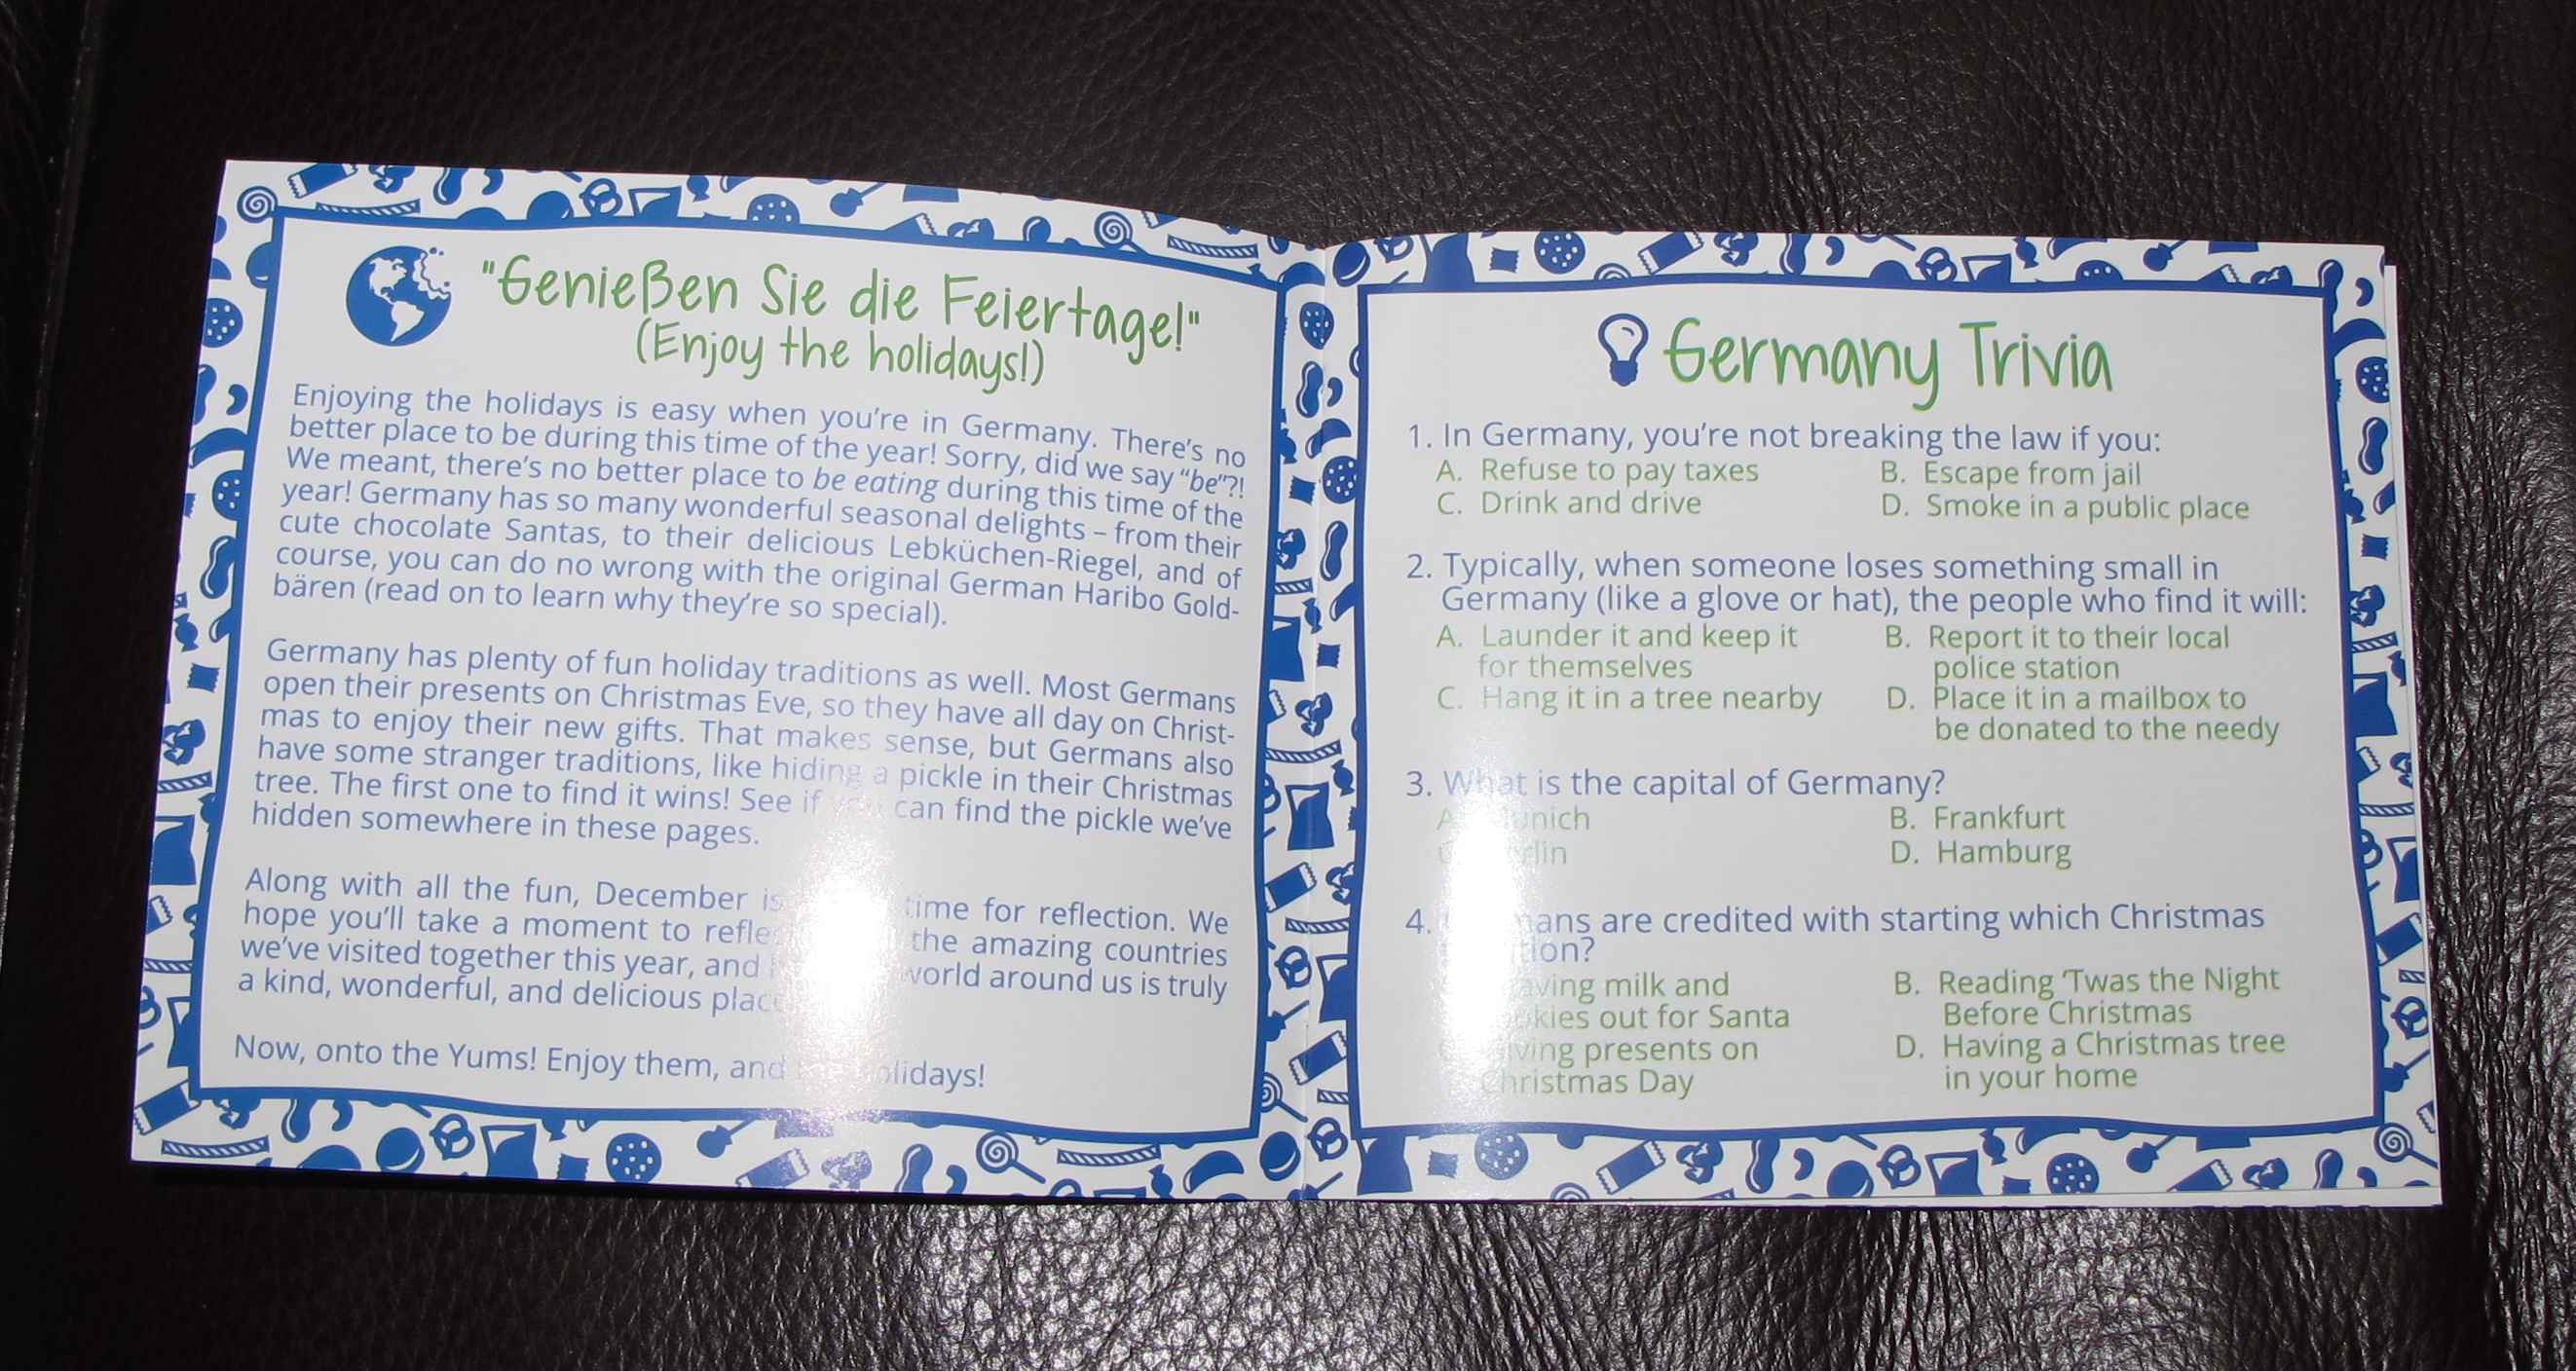 "Genießen Sie die Feiertage!"
(Enjoy the holidays!)
Enjoying the holidays is easy when you're in Germany. There's no
better place to be during this time of the year! Sorry, did we say "be"?!
We meant, there's no better place to be eating during this time of the
year! Germany has so many wonderful seasonal delights – from their
cute chocolate Santas, to their delicious Lebküchen-Riegel, and of
course, you can do no wrong with the original German Haribo Gold-
bären (read on to learn why they're so special).
Germany has plenty of fun holiday traditions as well. Most Germans
open their presents on Christmas Eve, so they have all day on Christ-
mas to enjoy their new gifts. That makes sense, but Germans also
have some stranger traditions, like hiding a pickle in their Christmas
tree. The first one to find it wins! See if you can find the pickle we've
hidden somewhere in these pages.
Along with all the fun, December is time for reflection. We
hope you'll take a moment to the amazing countries
we've visited together this year, and world around us is truly
a kind, wonderful, and delicious
Now, onto the Yums! Enjoy them, and holidays!
Germany Trivia
1. In Germany, you're not breaking the law if you:
A. Refuse to pay taxes B. Escape from jail
C. Drink and drive D. Smoke in a public place
2. Typically, when someone loses something small in
Germany (like a glove or hat), the people who find it will:
A. Launder it and keep it B. Report it to their local
for themselves police station
C. Hang it in a tree nearby D. Place it in a mailbox to
be donated to the needy
3. What is the capital of Germany?
A. Munich B. Frankfurt
C. Berlin D. Hamburg
4. Germans are credited with starting which Christmas
tradition?
Leaving milk and B. Reading 'Twas the Night
cookies out for Santa Before Christmas
C. Giving presents on D. Having a Christmas tree
Christmas Day in your home